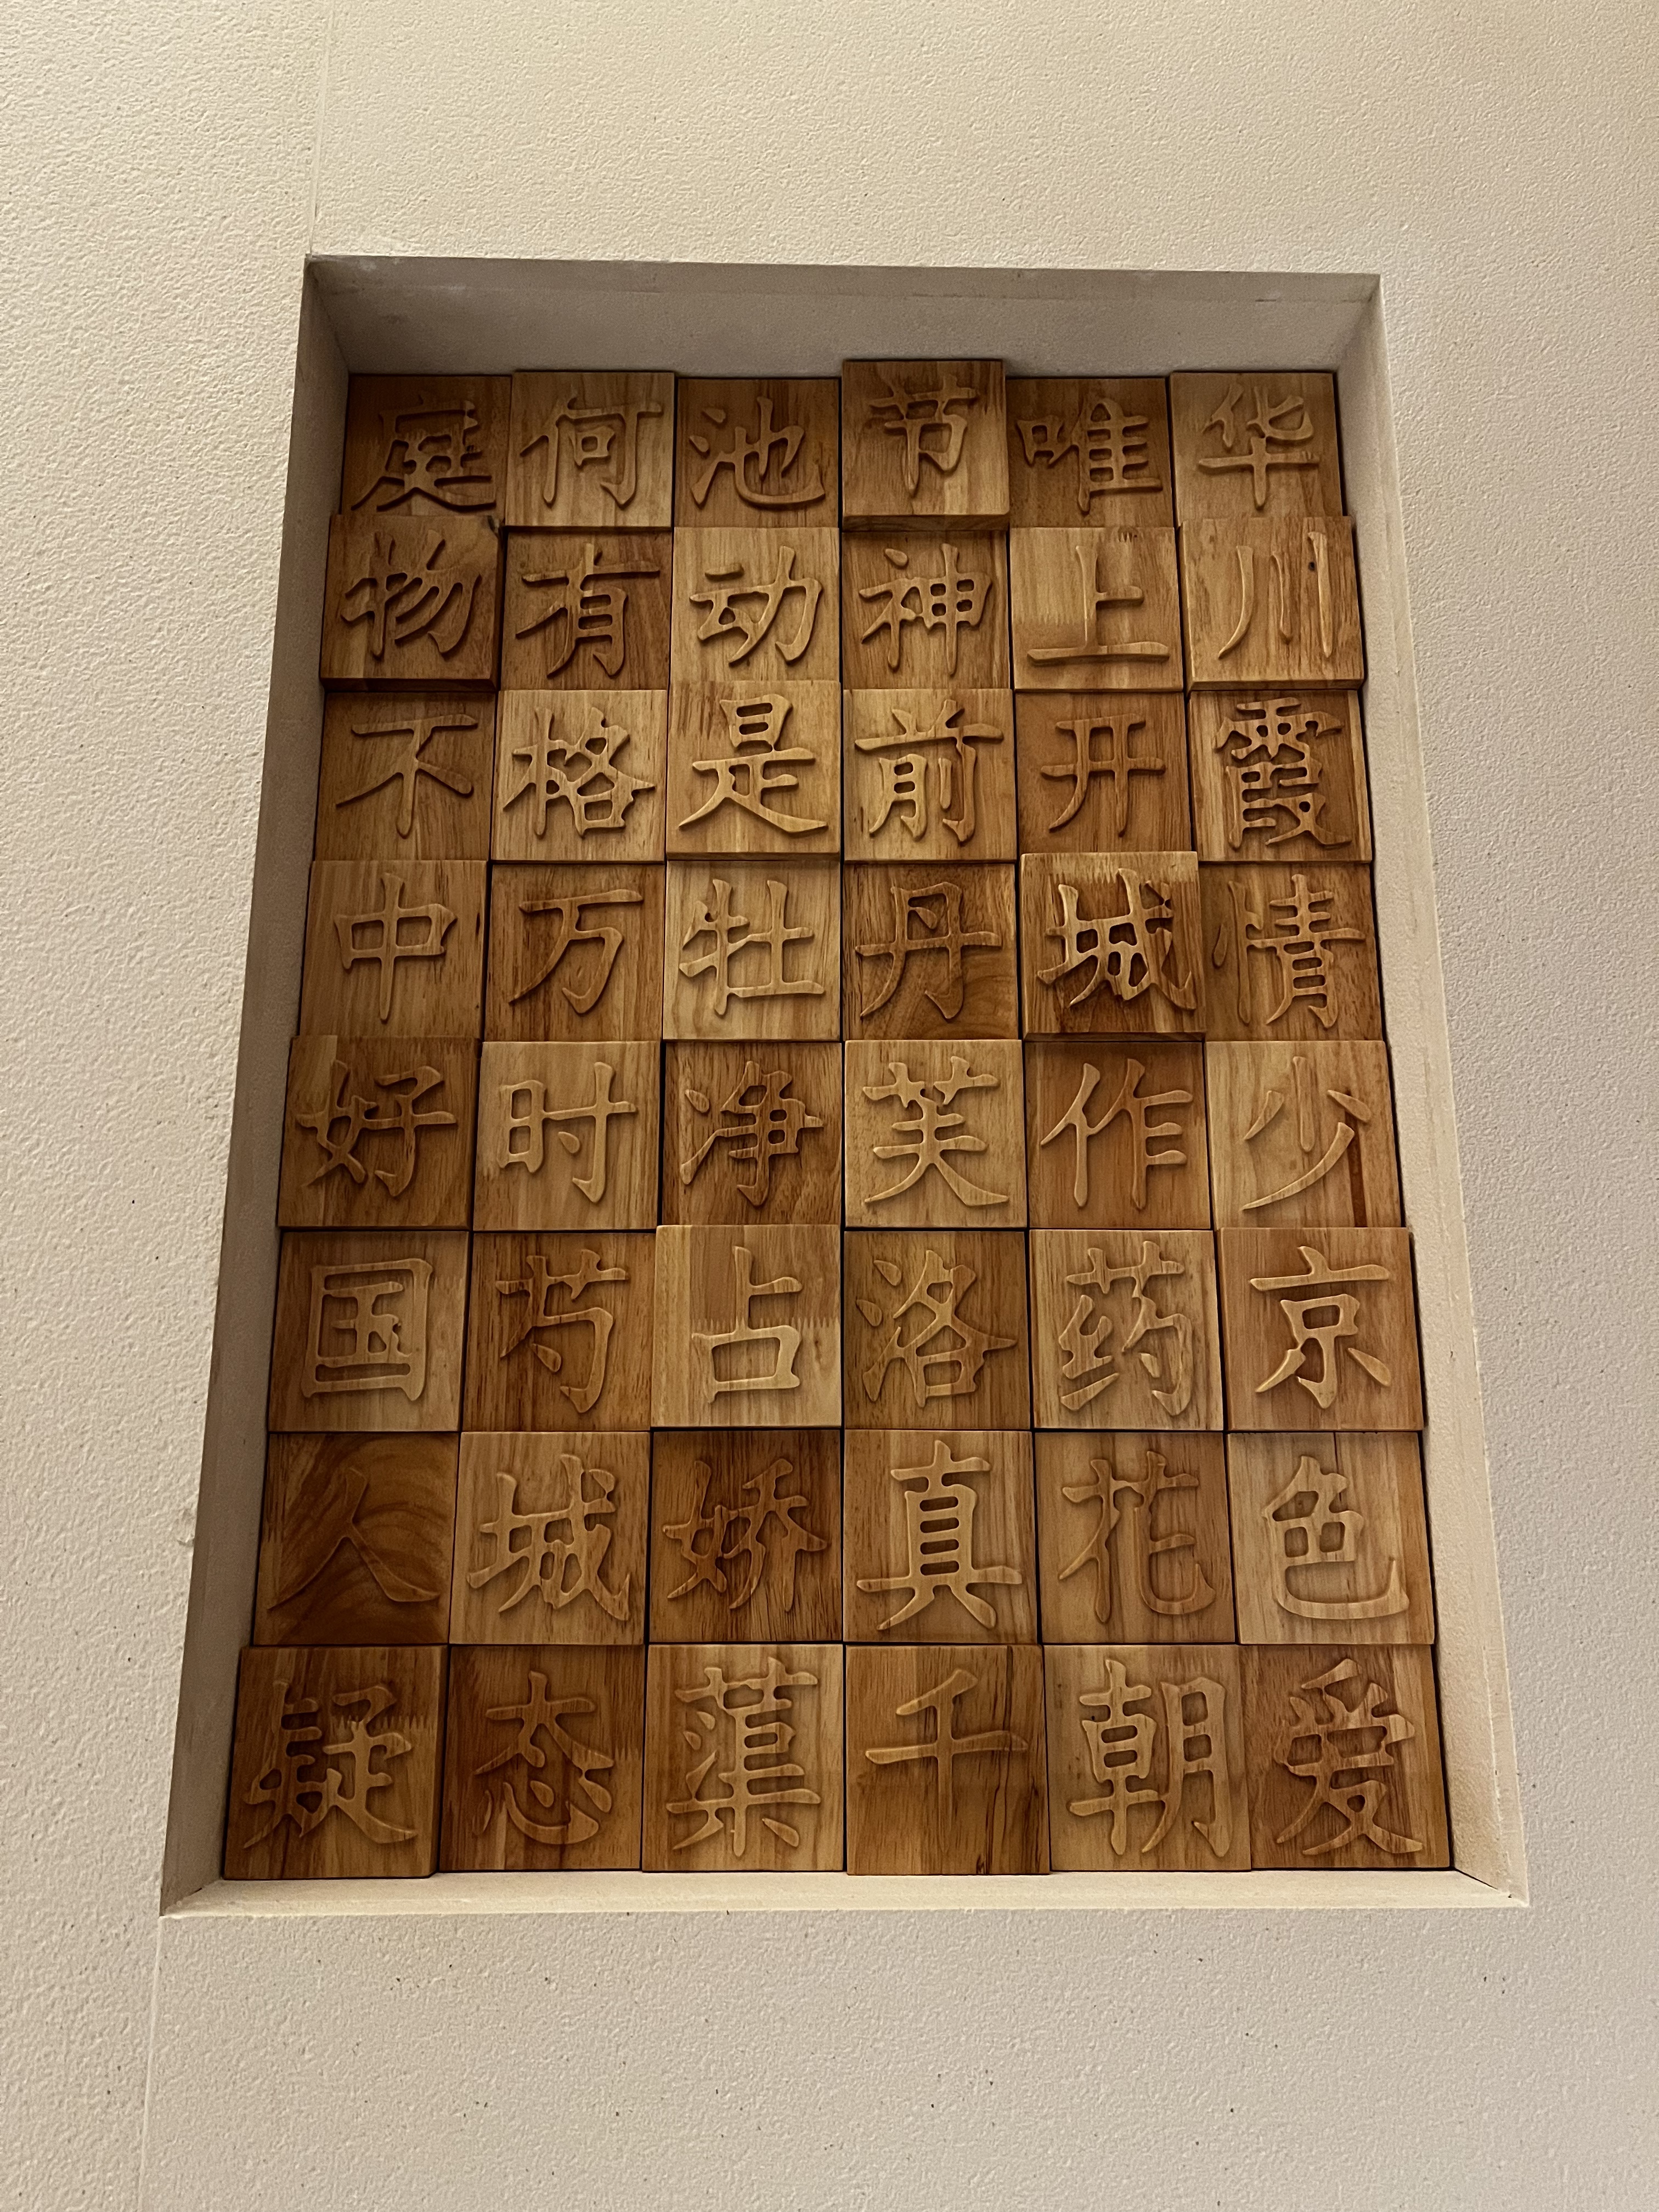 庭何池节唯华
物有动神上川
不格是前开霞
中万牡丹城情
好时净芙作少
国芍占洛药京
人城娇真花色
疑态蕖千朝爱